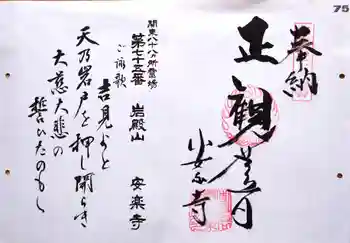 75
奉納
正観世音
安楽寺
関東八十八所霊場
第七十五番 岩殿山 安楽寺
ご詠歌
吉見よと
天乃岩戸を押し開らき
大慈大悲の
誓ひたのもし